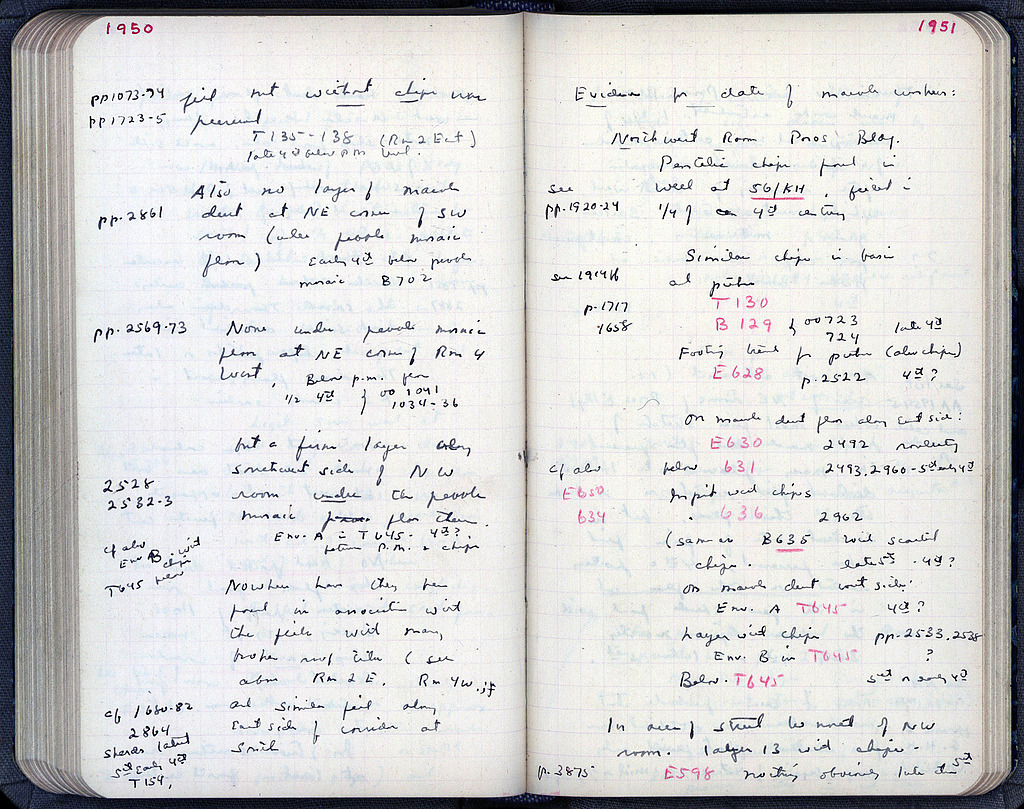 1950
pp 1073-74 fill but without chips was
pp 1723-5 present
T 135-138 (Rm 2 East)
late 4th below p.m. but
Also no layer of marble
pp. 2861 dust at NE corner of SW
room (under pebble mosaic
floor) Early 4th below pebble
mosaic B 702
pp. 2569-73 None under pebble mosaic
floor at NE corner of Rm 4
West, Below p.m. floor
1/2 4th } 00 1041
1034-36
but a firm layer along
southwest side of NW
2528 room under the pebble
2532-3 mosaic floor there.
Env. A = T645. 4th?
between P.M. & chips
cf also
Env B. with
chips
T645 below
Nowhere have they been
found in association with
the fills with many
broken roof tiles (see
above Rm 2 E. Rm 4 W.
cf 1680-82 at similar fill along
2864 East side of corridor at
sherds latest South
5th Early 4th
T 154,
1951
Evidence for date of marble workers:
Northwest Room Poros Bldg.
Pentelic chips found in
see well at 56/KH, filled in
pp. 1920-24 1/4 of 4th century
Similar chips in basin
see 1914ff at pithos
p. 1717 T 130
1658 B 129 } 00 723 late 4th
724
Footing trench for pithos (also chips)
E 628 p. 2522 4th?
On marble dust floor along East side:
E 630 2492
cf also below 631 2493, 2960 - 5th early 4th
E650 In pit with chips
634 . 636 2962
(same as B 635 with scattered
chips. late 5th - 4th?
On marble dust west side:
Env. A T645 4th?
Layer with chips pp. 2533, 2538
Env. B in T645 ?
Below. T645 5th or early 4th
In area of street to north of NW
room. layer 13 with chips -
p. 3875 E598 nothing obviously later than 5th